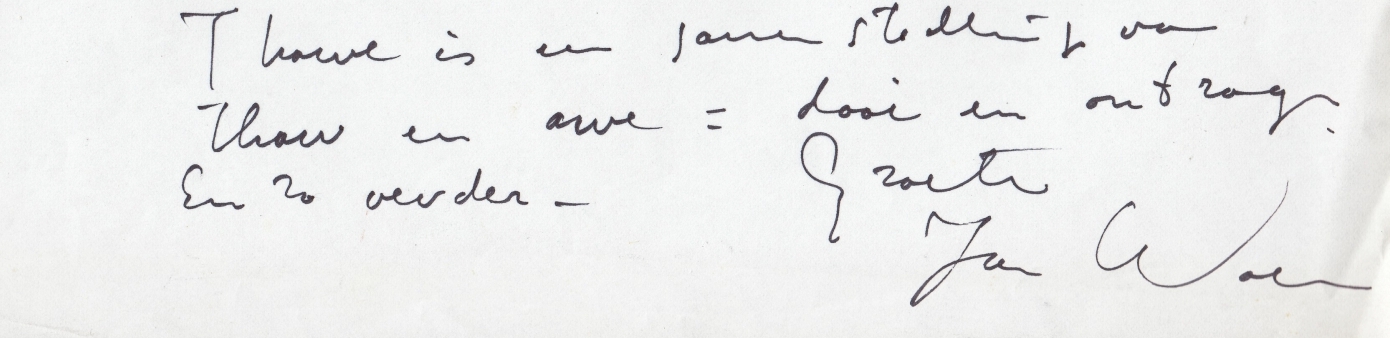 Thawe is een samenstelling van
Thaw en awe = dooi en ontzag.
En zo verder - Groeten
Jan